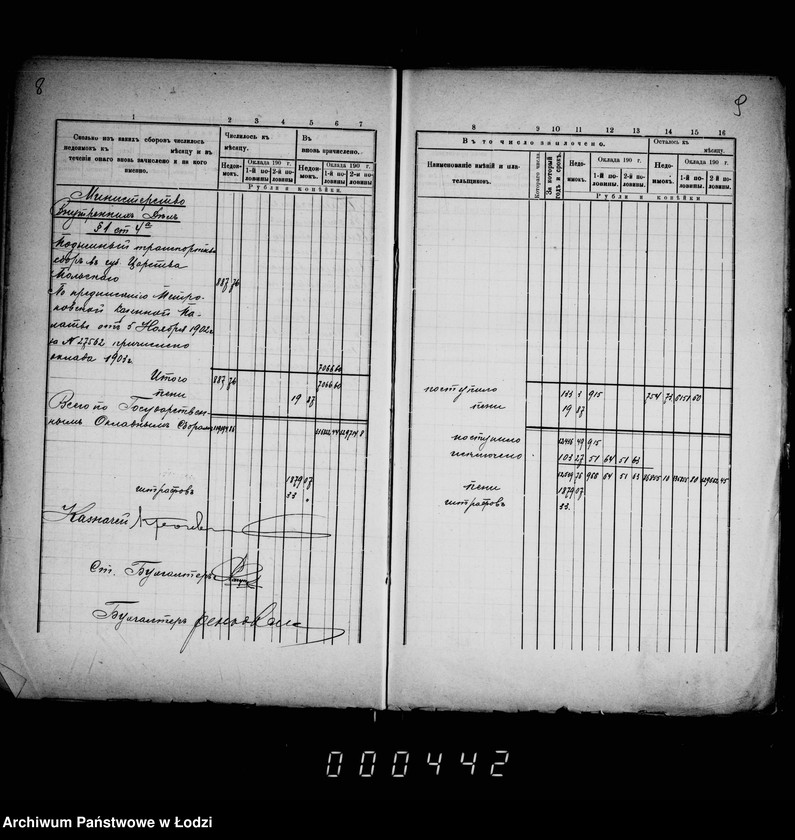 8
1 2 3 4 5 6 7
Сколько изъ какихъ сборовъ числилось
недоимокъ къ мѣсяцу и въ
теченіи онаго вновь начислено и на кого
именно.
Числилось къ
мѣсяцу.
Въ
вновь причислено.
Недои-
мокъ.
Оклада 190 г.
1-й по-
ловины.
2-й по-
ловины.
Недои-
мокъ.
Оклада 190 г.
1-й по-
ловины.
2-й по-
ловины.
Рубли и копѣйки.
Министерство
Внутреннихъ Дѣлъ
§1 ст 4
Подымный транспортный
сборъ въ губ. Царства
Польскаго 887 76
По предписанію Петро-
ковской Казенной Па-
латы отъ 5 Ноября 1902 г.
за N 27562 причислено
оклада 1903 г. 7066 60
Итого 887 76 7066 60
пени 19 87
Всего по Государствен-
нымъ Окладнымъ Сборамъ
1879 07
штрафовъ 33 "
Казначей
Ст. Бухгалтеръ
Бухгалтеръ
9
8 9 10 11 12 13 14 15 16
Въ то число уплочено.
Осталось къ
мѣсяцу.
Наименованіе имѣній и пла-
тельщиковъ.
Котораго числа
За который
годъ и срокъ.
Недо-
имокъ.
Оклада 190 г.
1-й по-
ловины.
2-й по-
ловины.
Недо-
имокъ.
Оклада 190 г.
1-й по-
ловины.
2-й по-
ловины.
Рубли и копѣйки
поступило 133 3 915 754 73 6151 60
пени 19 87
поступило 12466 49 915
исключено 103 27 51 64 51 63
пени 1879 07
штрафовъ 33
000442
Archiwum Państwowe w Łodzi